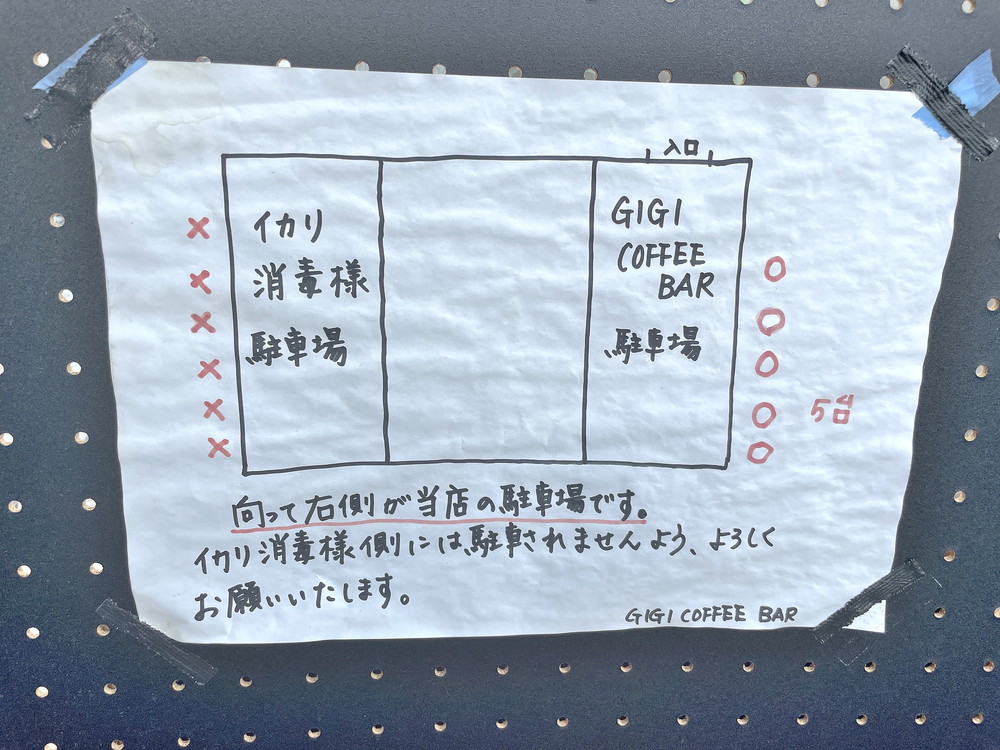 入口
イカリ
消毒様
駐車場
GIGI
COFFEE
BAR
駐車場
× × × × × ×
○ ○ ○ ○ ○
5台
向って右側が当店の駐車場です。
イカリ消毒様側には駐車されませんよう、よろしく
お願いいたします。
GIGI COFFEE BAR